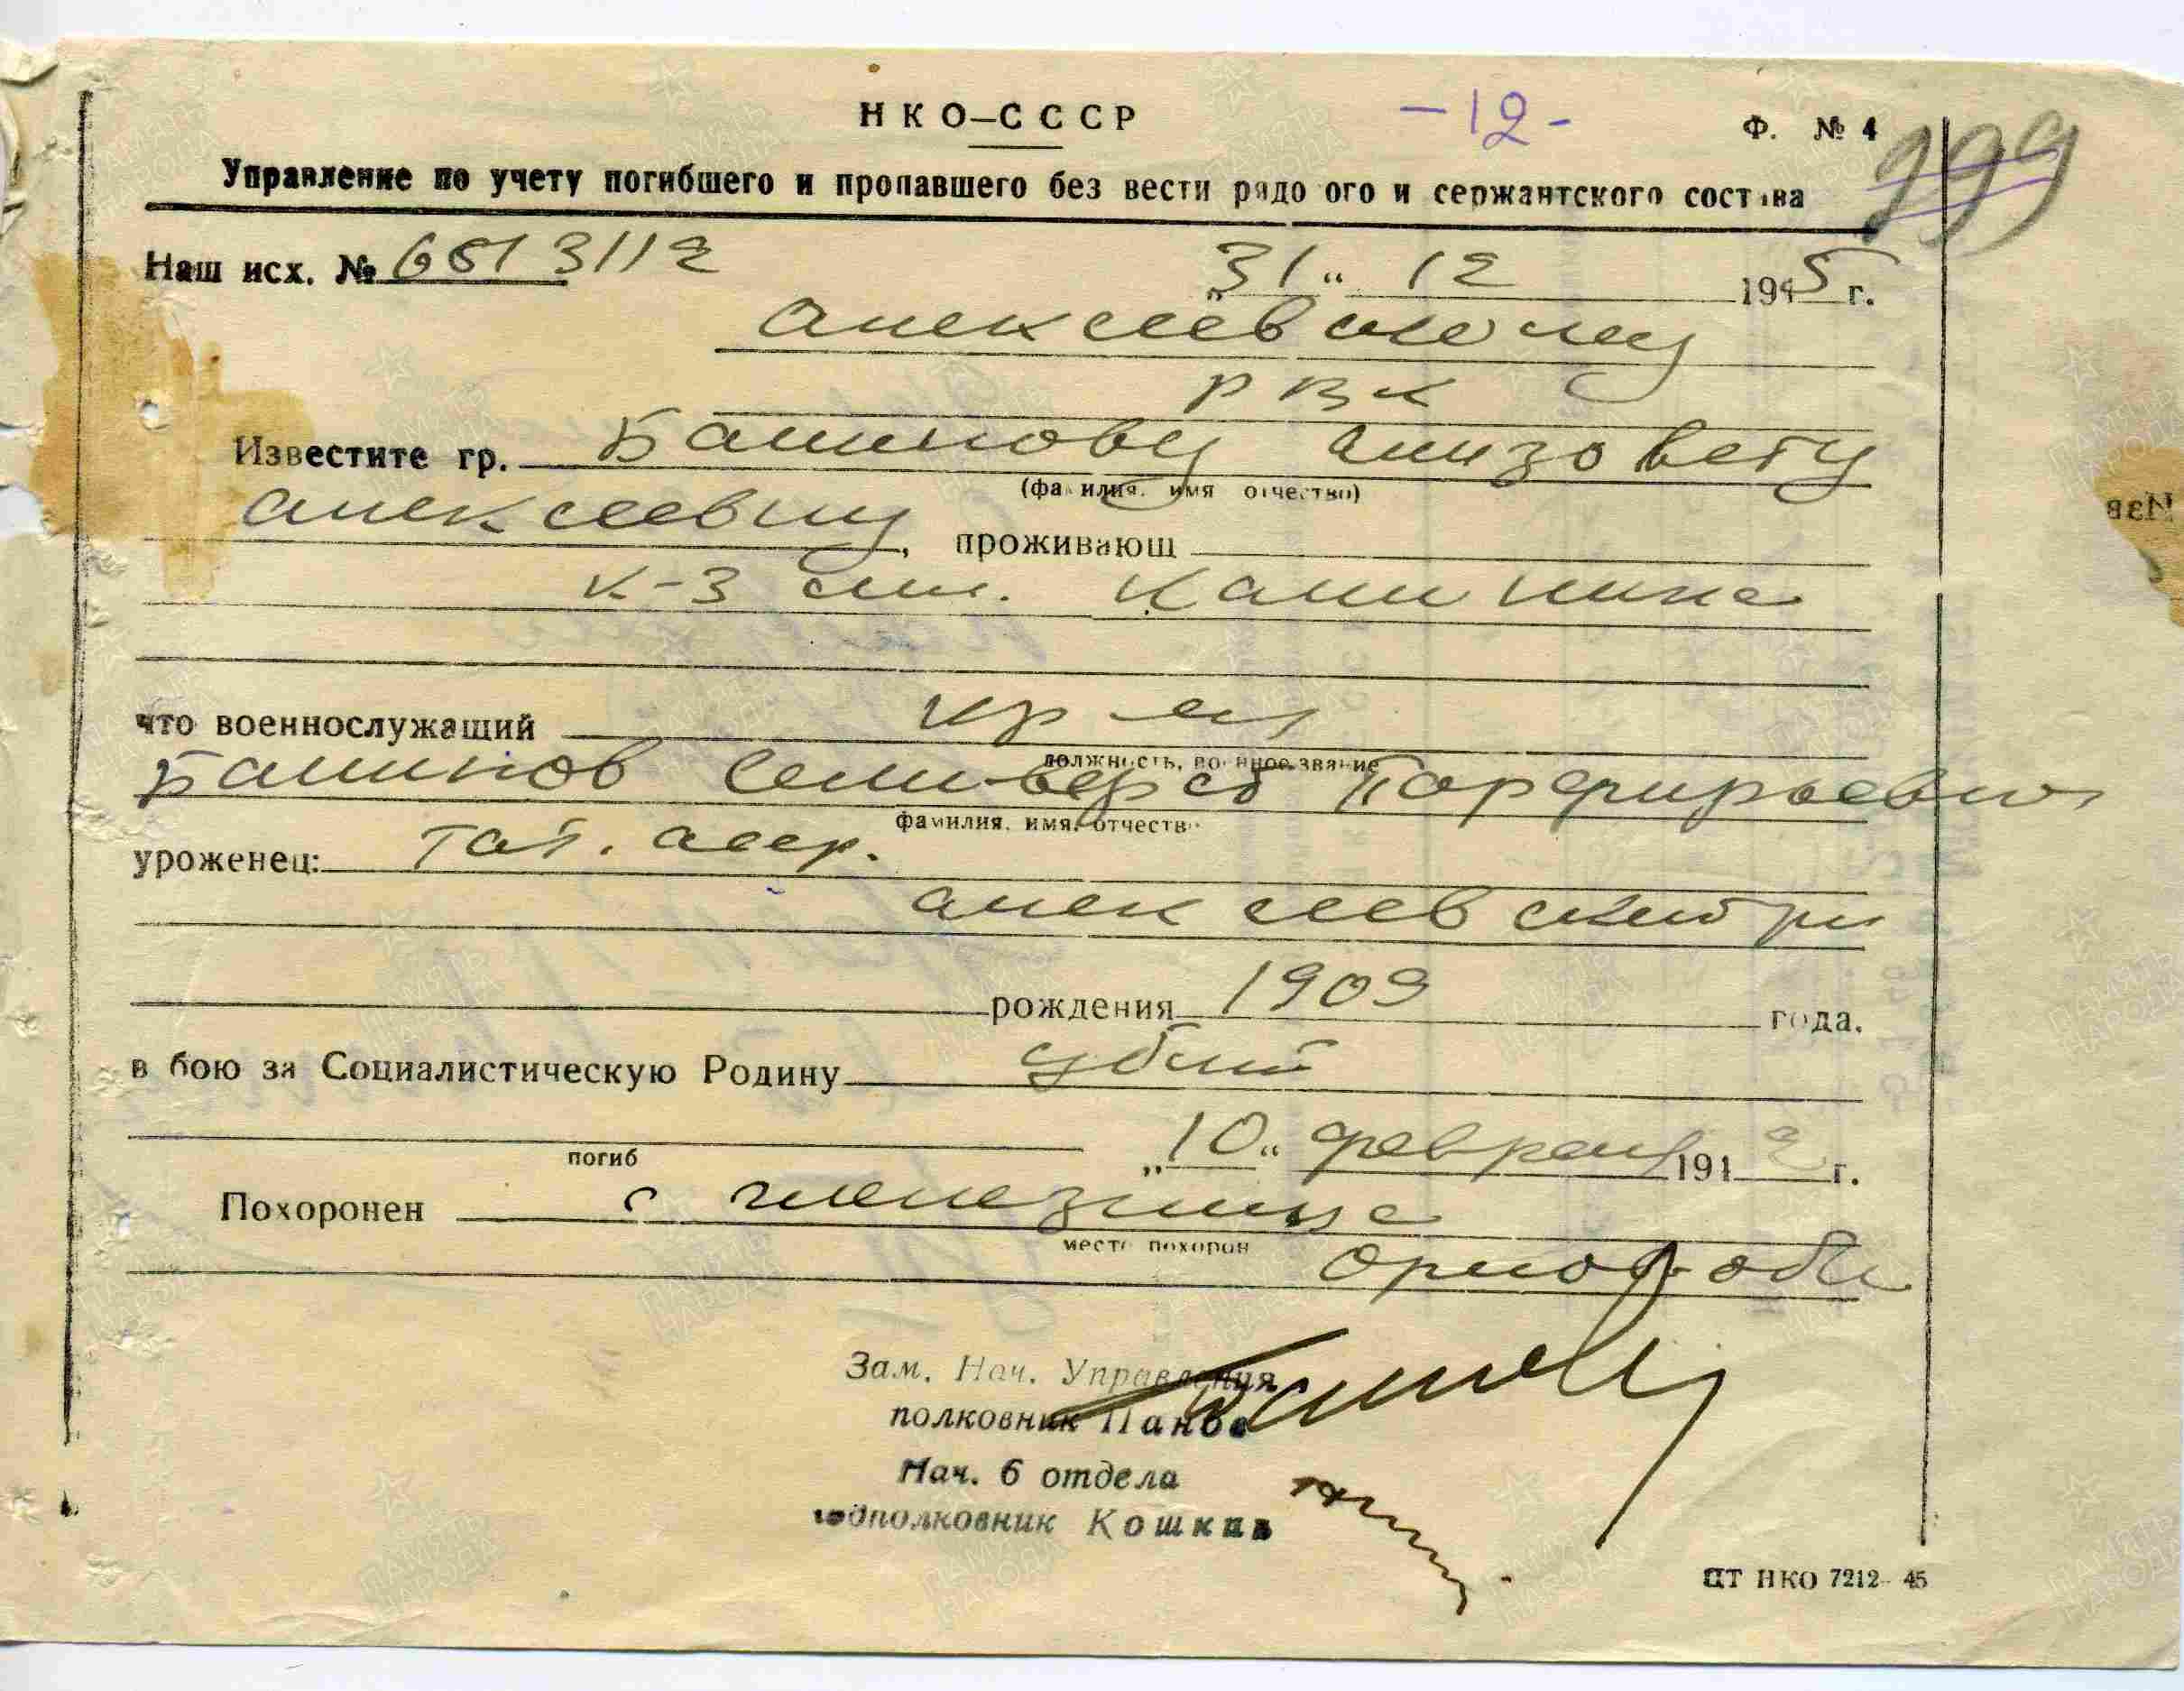 НКО–СССР
-12-
Ф. № 4
999
Управление по учету погибшего и пропавшего без вести рядо ого и сержантского состава
Наш исх. № 6513112 „31“ 12 1945 г.
Алексеевскому
РВК
Известите гр. Балинову Ализовету
(фамилия, имя отчество)
Алексеевну, проживающ
к-з им. Калинина
что военнослужащий кр-ец
должность, военное звание
Балинов Селиверст Порфирьевич
фамилия, имя, отчество
уроженец: Тат. АССР.
Алексеевский р-н
рождения 1909 года.
в бою за Социалистическую Родину убит
погиб „10“ февраля 1942 г.
Похоронен с
место похорон
Орлов. обл
Зам. Нач. Управления
полковник Панов
Нач. 6 отдела
подполковник Кошкин
ЦТ НКО 7212–45